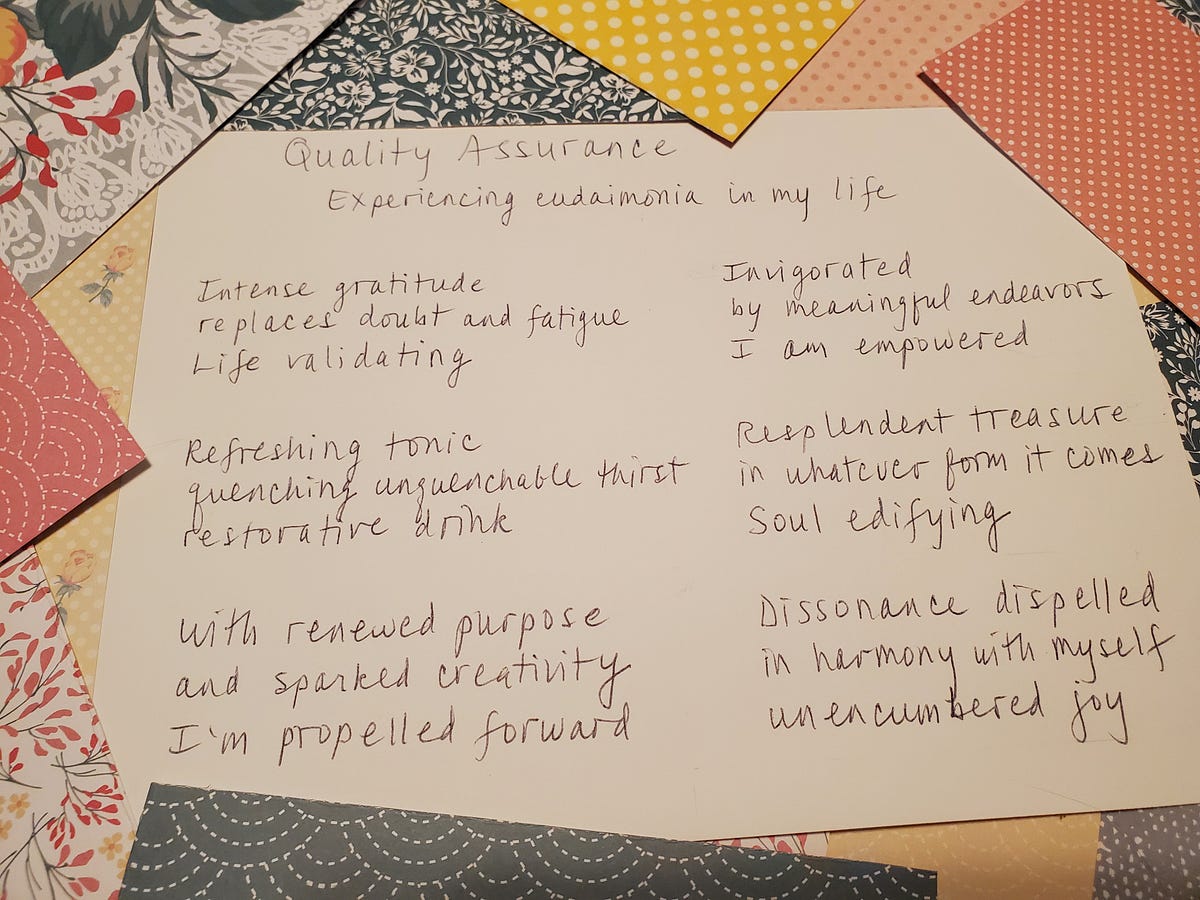 Quality Assurance
Experiencing eudaimonia in my life
Intense gratitude
replaces doubt and fatigue
Life validating
Refreshing tonic
quenching unquenchable thirst
restorative drink
With renewed purpose
and sparked creativity
I'm propelled forward
Invigorated
by meaningful endeavors
I am empowered
Resplendent treasure
in whatever form it comes
Soul edifying
Dissonance dispelled
in harmony with myself
unencumbered joy